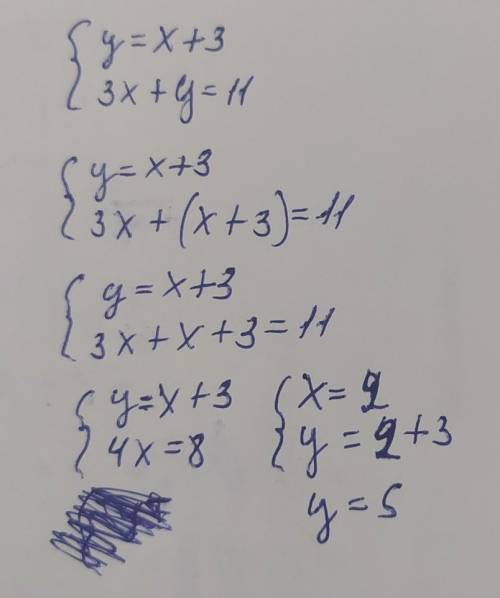 { y = x + 3
3x + y = 11
{ y = x + 3
3x + (x + 3) = 11
{ y = x + 3
3x + x + 3 = 11
{ y = x + 3
4x = 8
{ x = 2
y = 2 + 3
y = 5